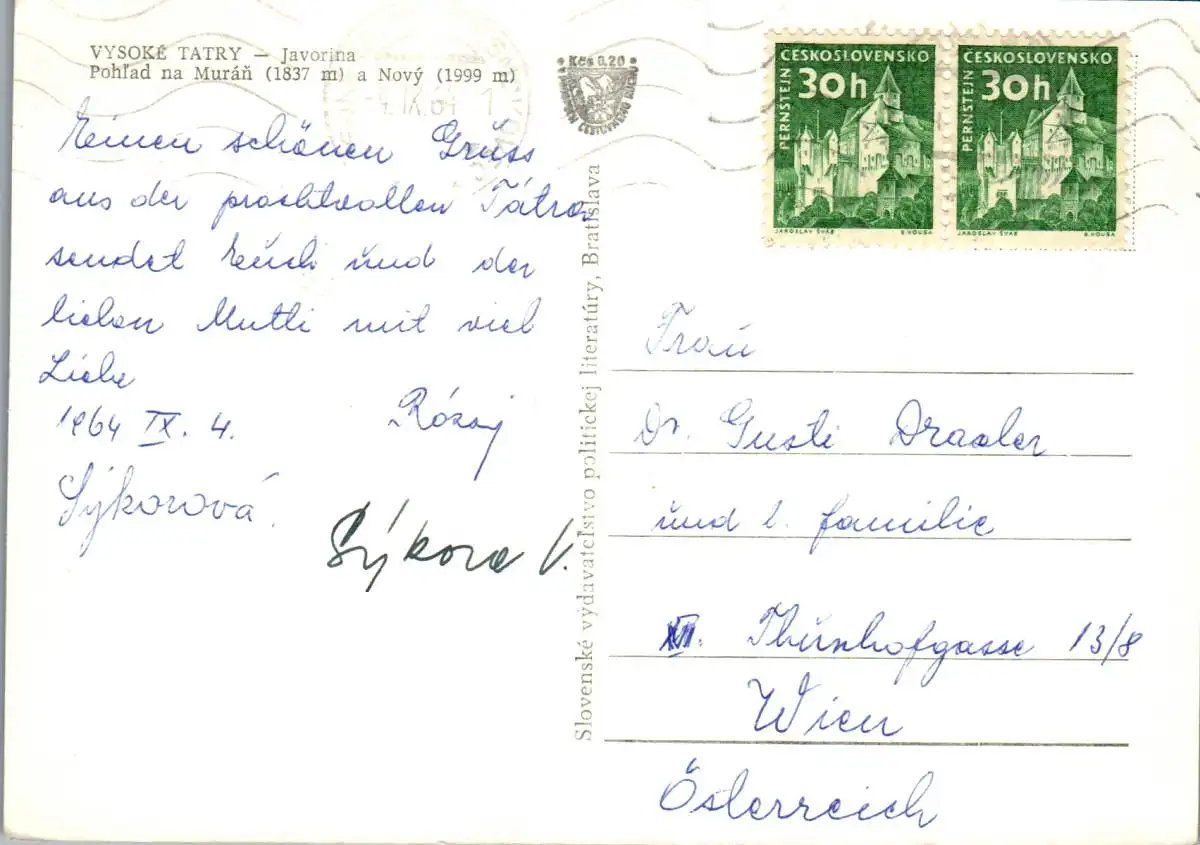 VYSOKÉ TATRY — Javorina
Pohľad na Muráň (1837 m) a Nový (1999 m)
Kčs 0,20
ČESKOSLOVENSKO
30h
PERNSTEJN
JAROSLAV ŠVÁB
ČESKOSLOVENSKO
30h
PERNSTEJN
JAROSLAV ŠVÁB
-4.IX.64-1
Einen schönen Grüss
aus der prachtvollen Tátra
sendet Euch und der
lieben Mutti mit viel
Liebe
1964 IX. 4. Rózsy
Sýkorová.
Sýkora V.
Slovenské vydavateľstvo politickej literatúry, Bratislava
Frau
Dr. Gusti Draxler
und l. familie
XII. Thunhofgasse 13/8
Wien
Österreich